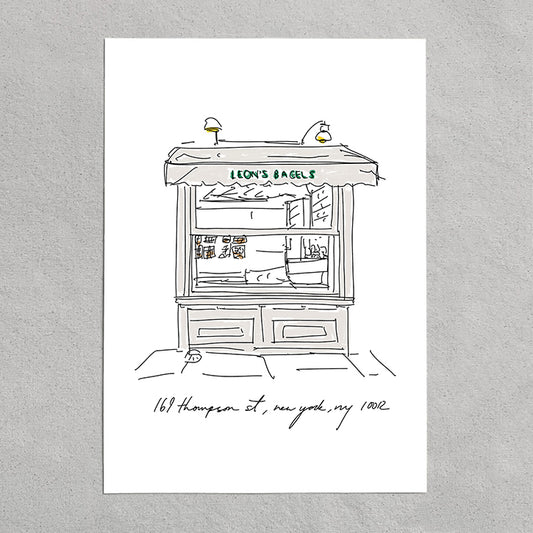 LEON'S BAGELS
169 thompson st, new york, ny 10012